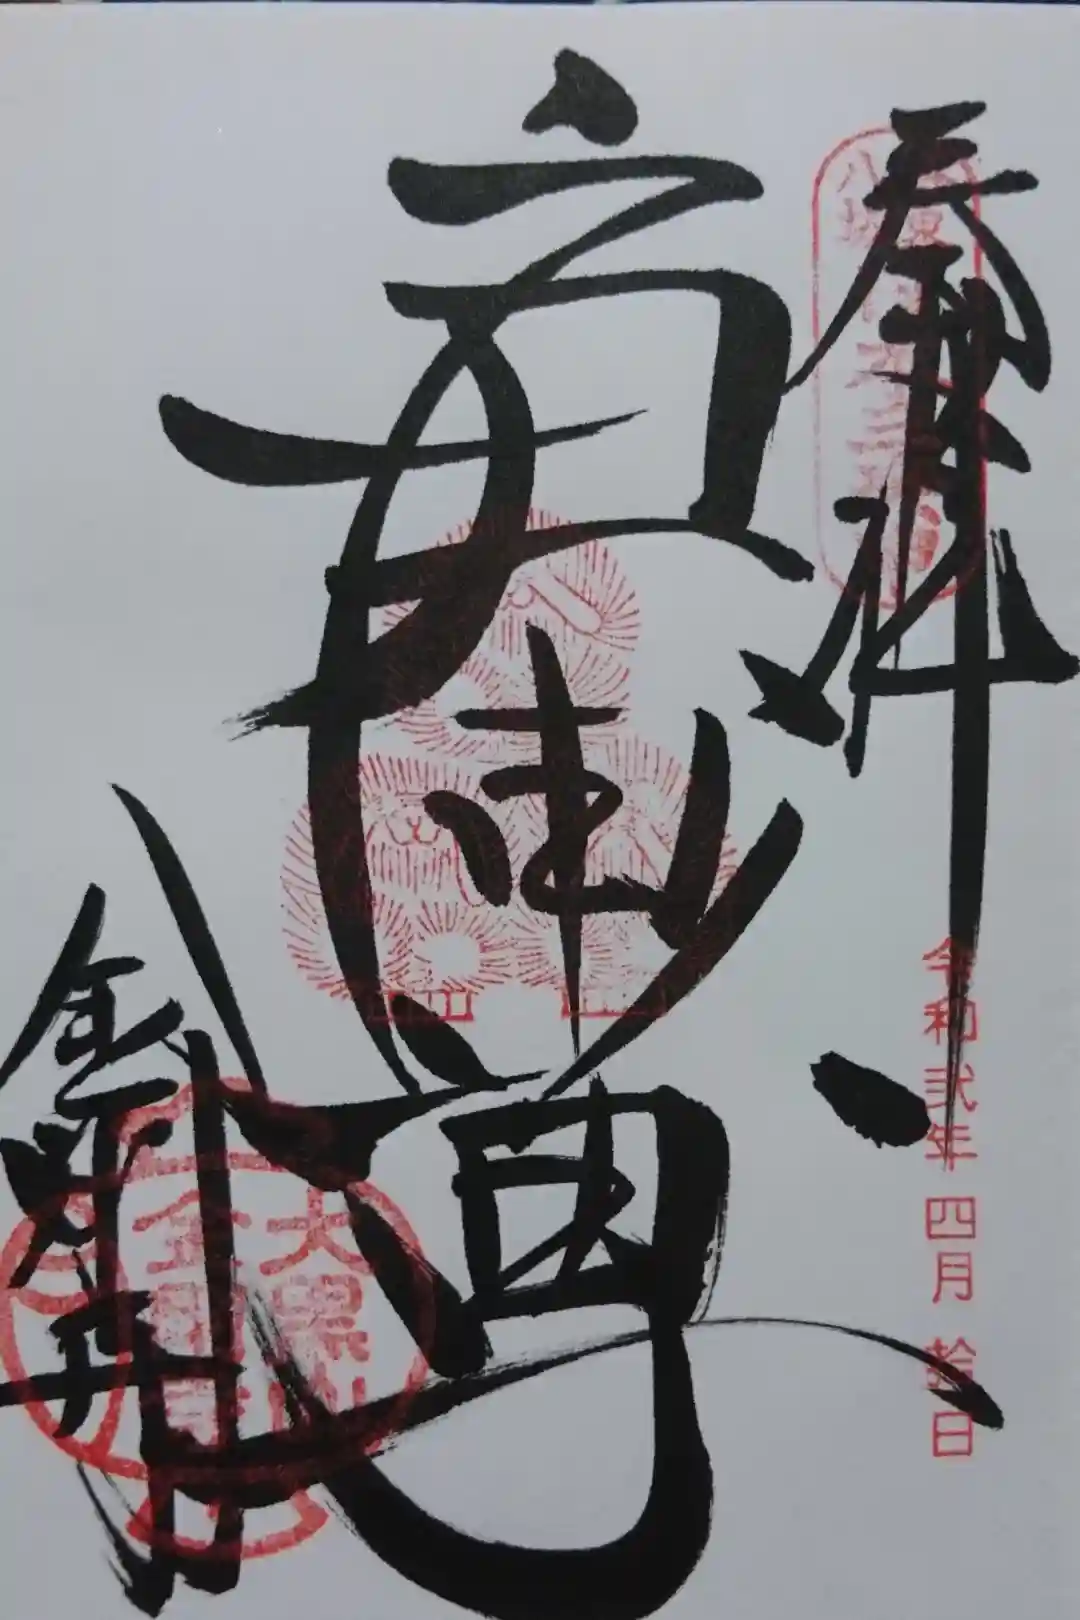 奉拝
令和弐年四月拾日
庚申尊
金剛寺
大黒山
金剛寺